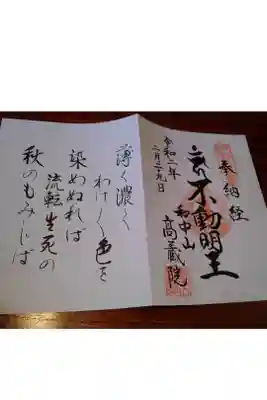 奉納経
不動明王
中山
高蔵院
令和二年
二月二十九日
薄く濃く
わけ〳〵色を
染めぬれば
流転生死の
秋のもみじば